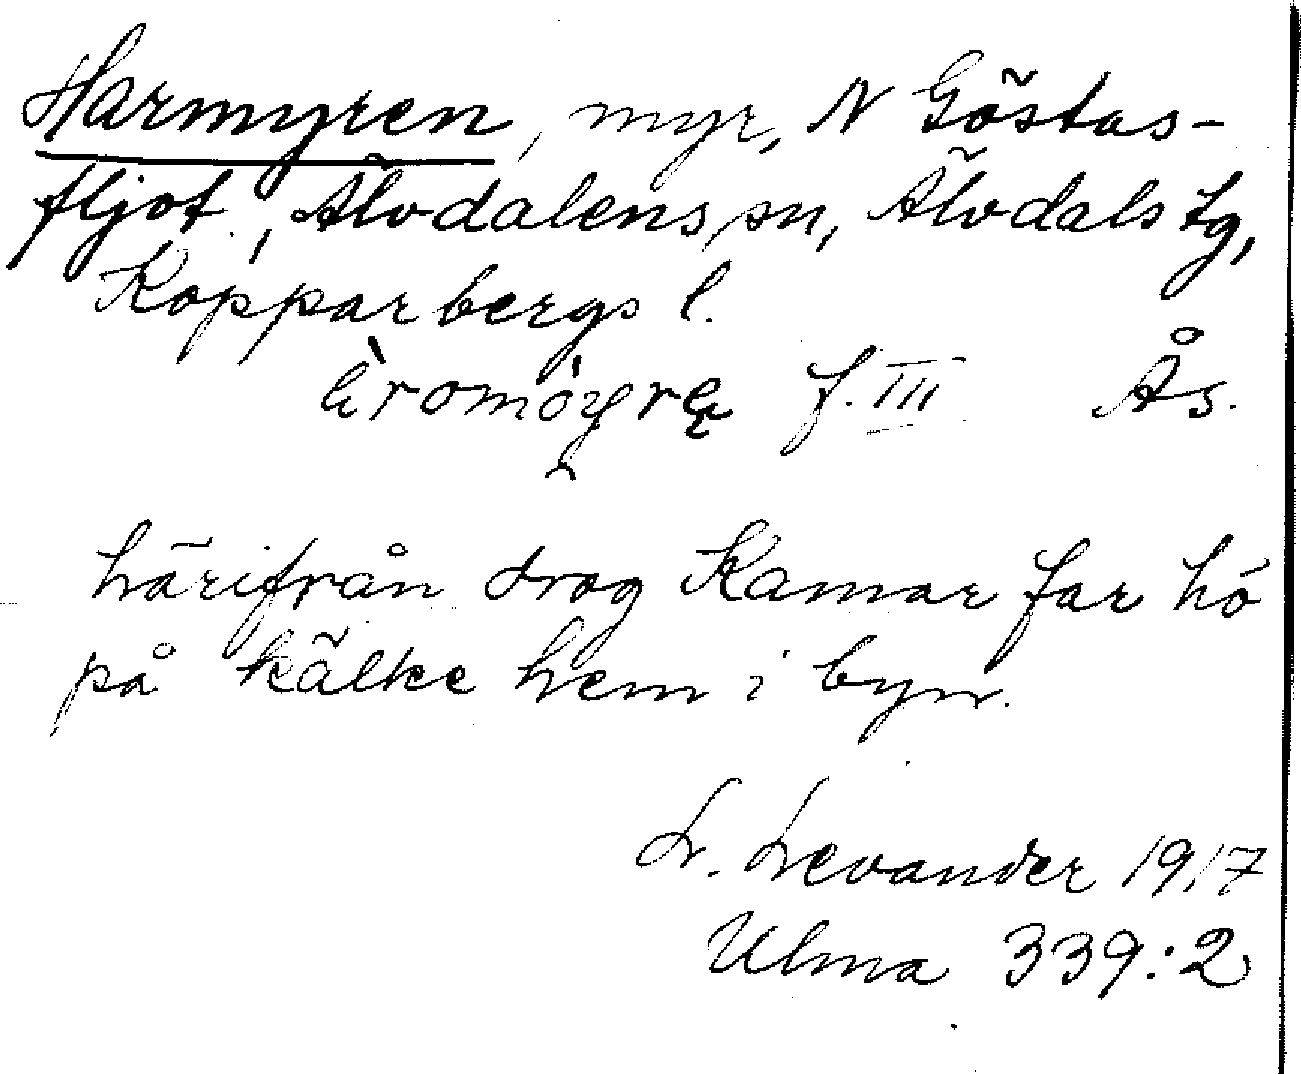 Harmyren, myr, N Göstas-
fljot, Älvdalens sn, Älvdals tg,
Kopparbergs l.
f. III Ås.
härifrån drog Kamar far hö
på kälke hem i byn.
L. Levander 1917
Ulma 339:2